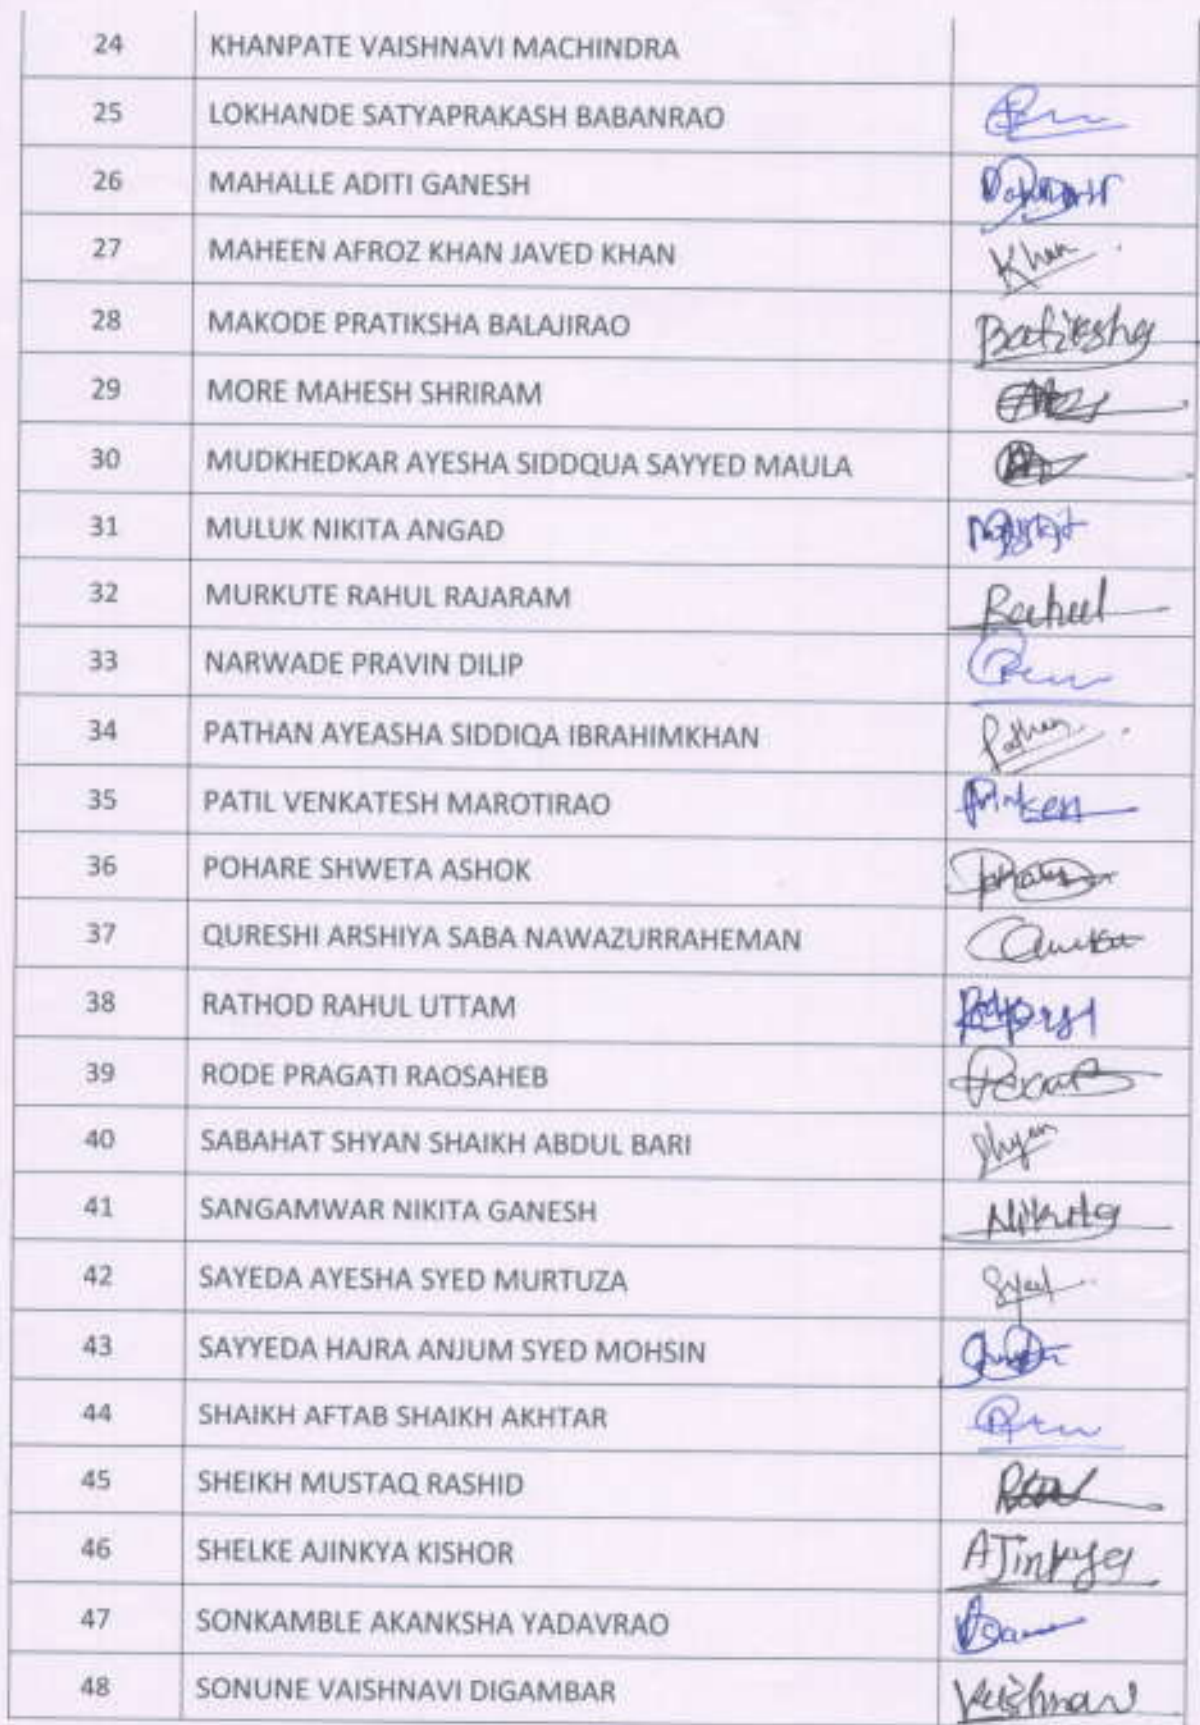 24 KHANPATE VAISHNAVI MACHINDRA
25 LOKHANDE SATYAPRAKASH BABANRAO
26 MAHALLE ADITI GANESH
27 MAHEEN AFROZ KHAN JAVED KHAN Khan
28 MAKODE PRATIKSHA BALAJIRAO
29 MORE MAHESH SHRIRAM
30 MUDKHEDKAR AYESHA SIDDQUA SAYYED MAULA
31 MULUK NIKITA ANGAD
32 MURKUTE RAHUL RAJARAM
33 NARWADE PRAVIN DILIP
34 PATHAN AYEASHA SIDDIQA IBRAHIMKHAN Pathan
35 PATIL VENKATESH MAROTIRAO
36 POHARE SHWETA ASHOK
37 QURESHI ARSHIYA SABA NAWAZURRAHEMAN
38 RATHOD RAHUL UTTAM
39 RODE PRAGATI RAOSAHEB
40 SABAHAT SHYAN SHAIKH ABDUL BARI Shyan
41 SANGAMWAR NIKITA GANESH Nikita
42 SAYEDA AYESHA SYED MURTUZA Syed
43 SAYYEDA HAJRA ANJUM SYED MOHSIN
44 SHAIKH AFTAB SHAIKH AKHTAR
45 SHEIKH MUSTAQ RASHID
46 SHELKE AJINKYA KISHOR AJinkya
47 SONKAMBLE AKANKSHA YADAVRAO
48 SONUNE VAISHNAVI DIGAMBAR